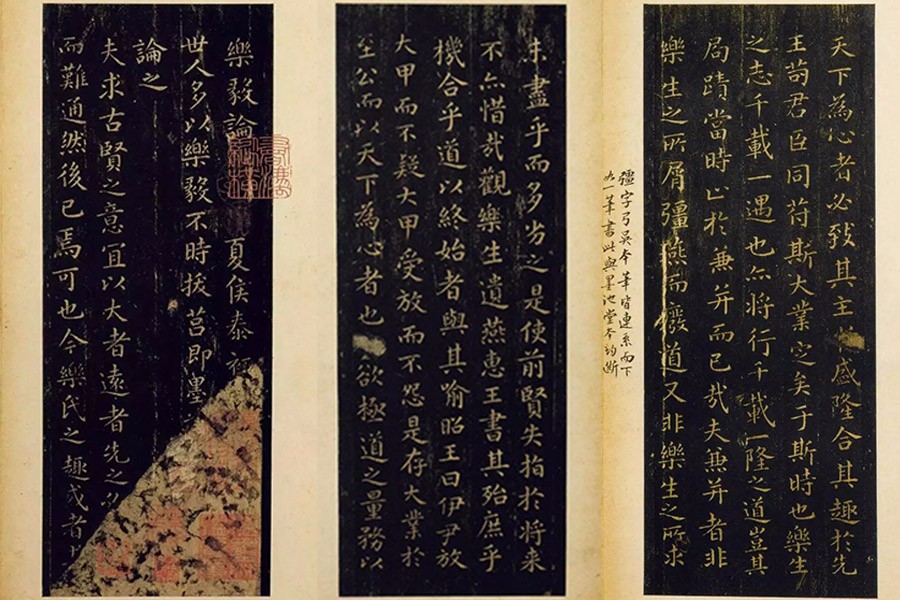 樂毅論 夏侯泰初
世人多以樂毅不時拔莒即墨
論之
夫求古賢之意宜以大者遠者先之必
而難通然後已焉可也今樂氏之趣或者
未盡乎而多劣之是使前賢失指於將來
不亦惜哉觀樂生遺燕惠王書其殆庶乎
機合乎道以終始者與其喻昭王曰伊尹放
大甲而不疑大甲受放而不怨是存大業於
至公而以天下為心者也欲極道之量務以
彊字弓吳本筆皆連系而下
如一筆書此與墨池堂本均斷
天下為心者必致其主盛隆合其趣於先
王苟君臣同苻斯大業定矣于斯時也樂生
之志千載一遇也亦將行千載一隆之道豈其
局蹟當時止於兼并而已哉夫兼并者非
樂生之所屑彊燕而廢道又非樂生之所求